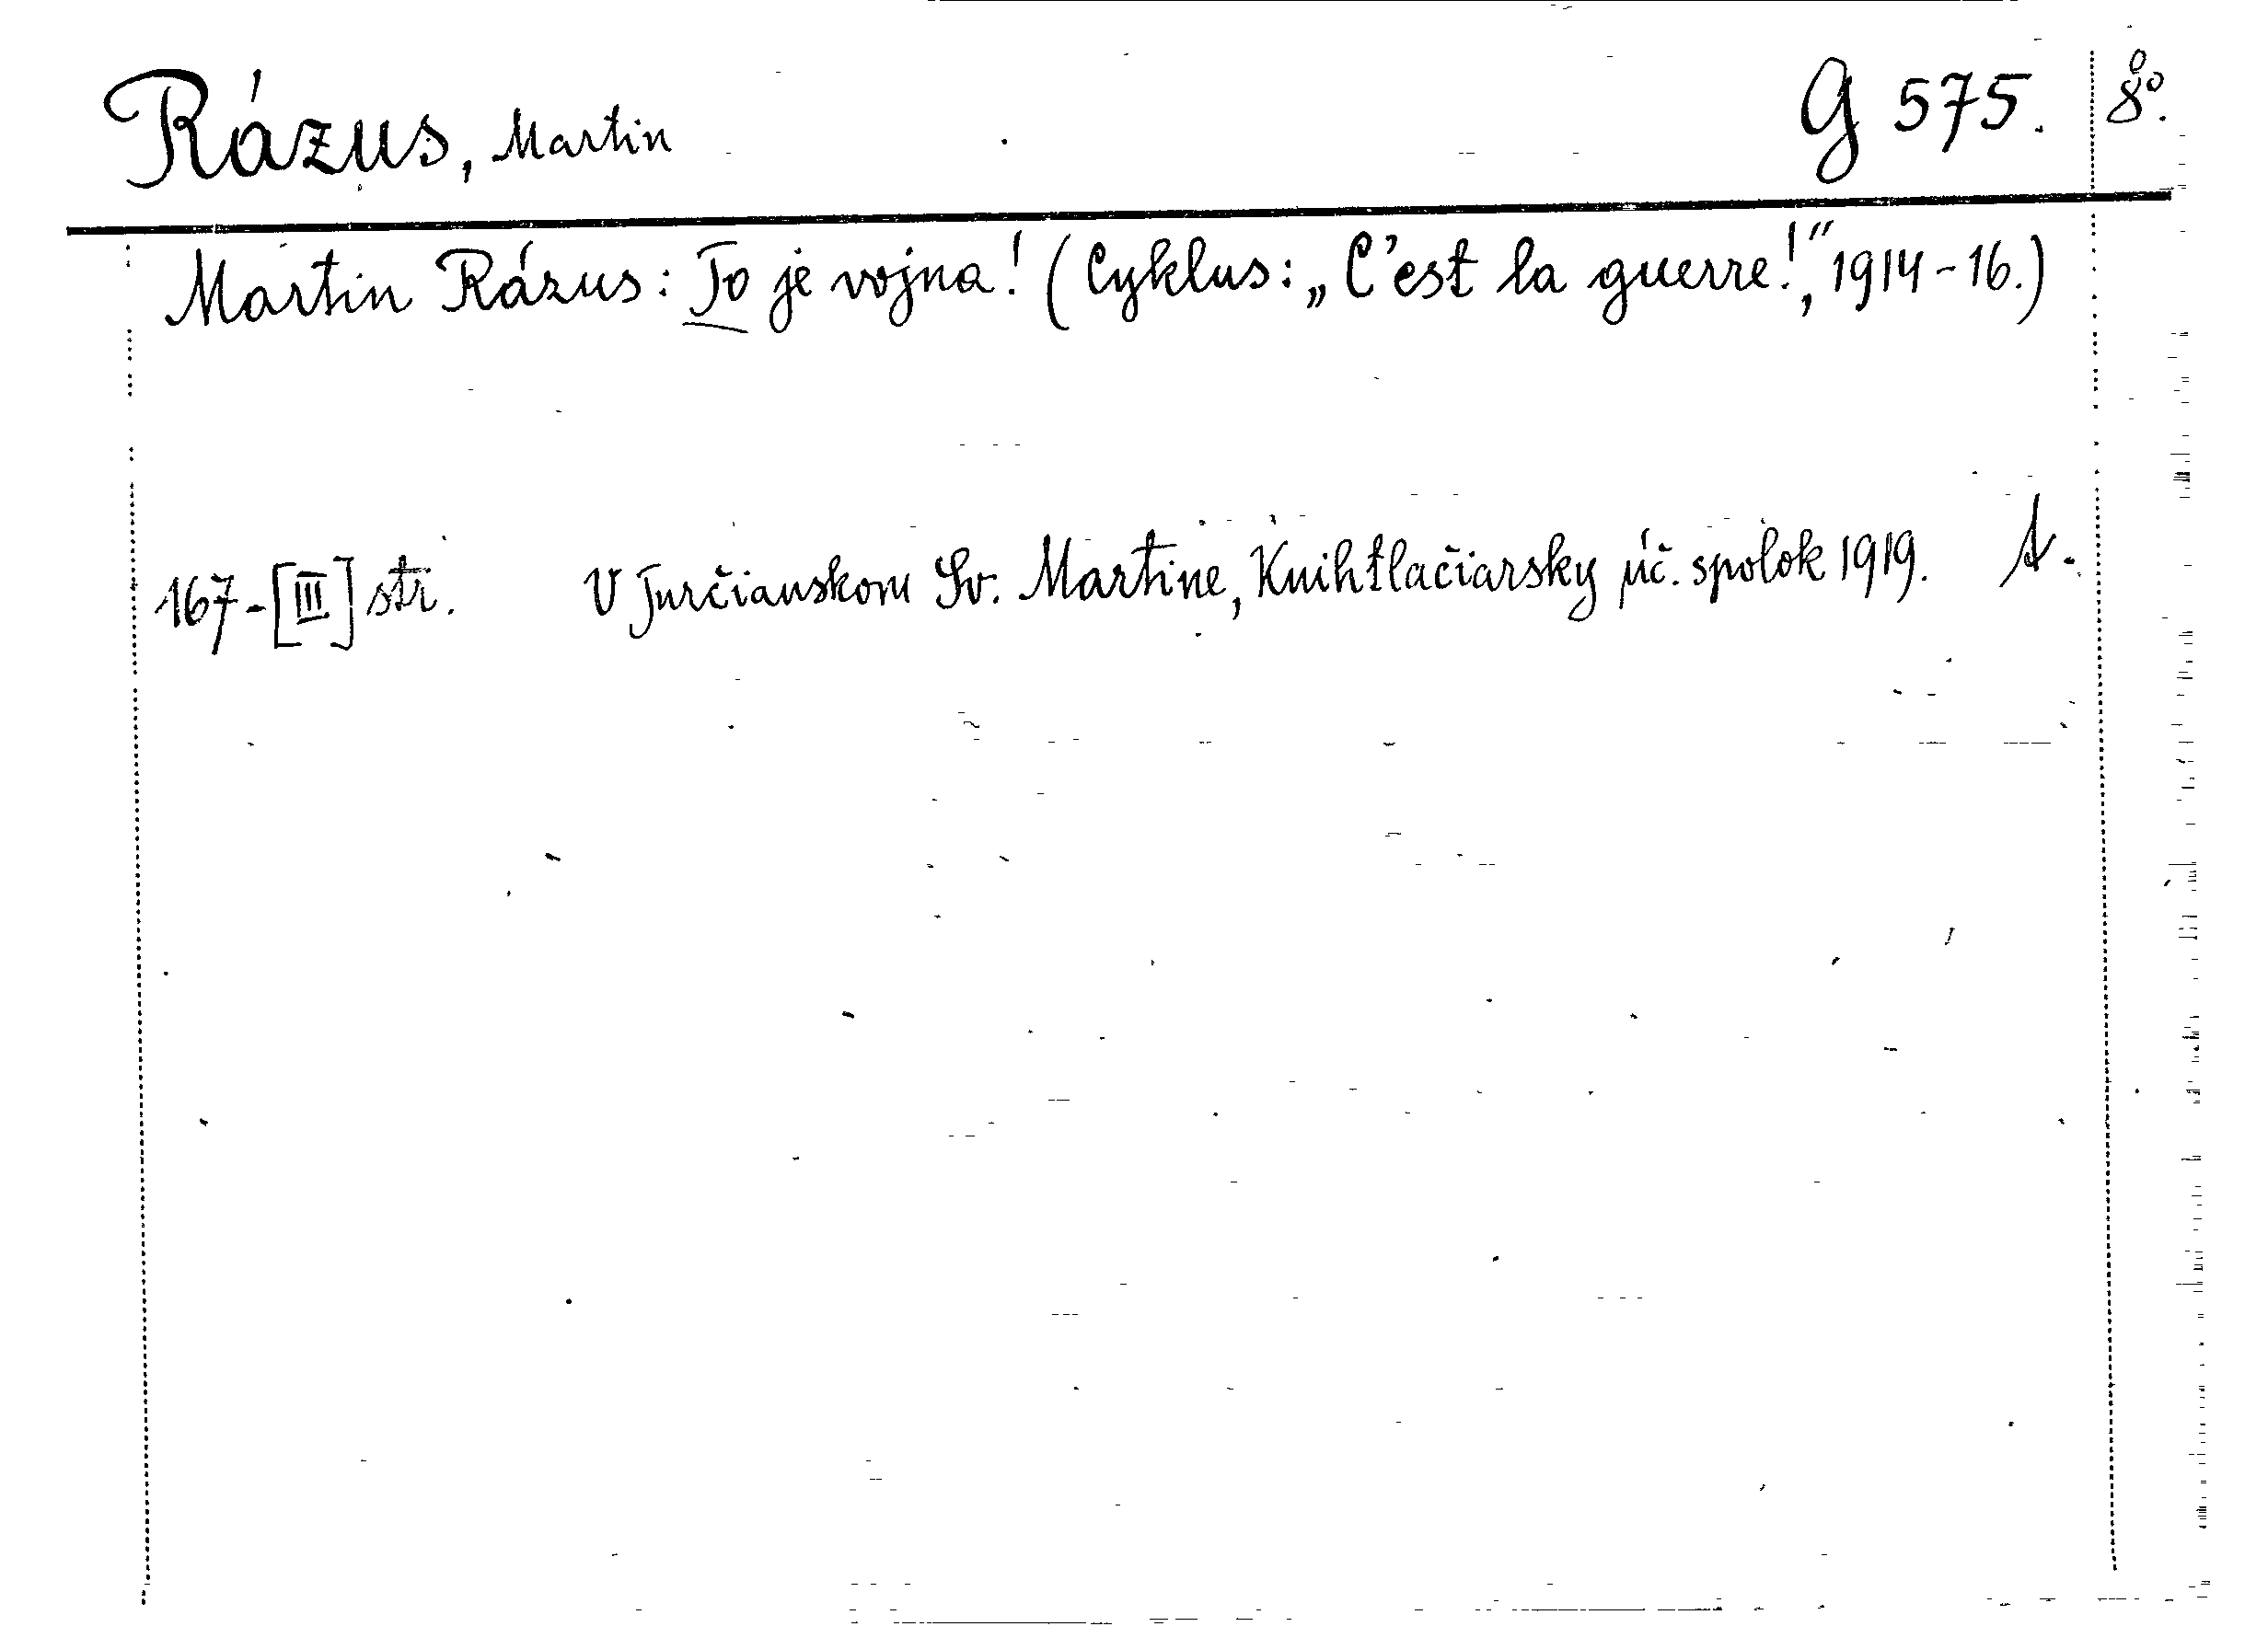 Rázus, Martin G 575. 8°.
Martin Rázus: To je vojna! (Cyklus: „C'est la guerre!", 1914-16.)
167-[III] str. V Turčianskom Sv. Martine, Knihtlačiarsky úč. spolok 1919.